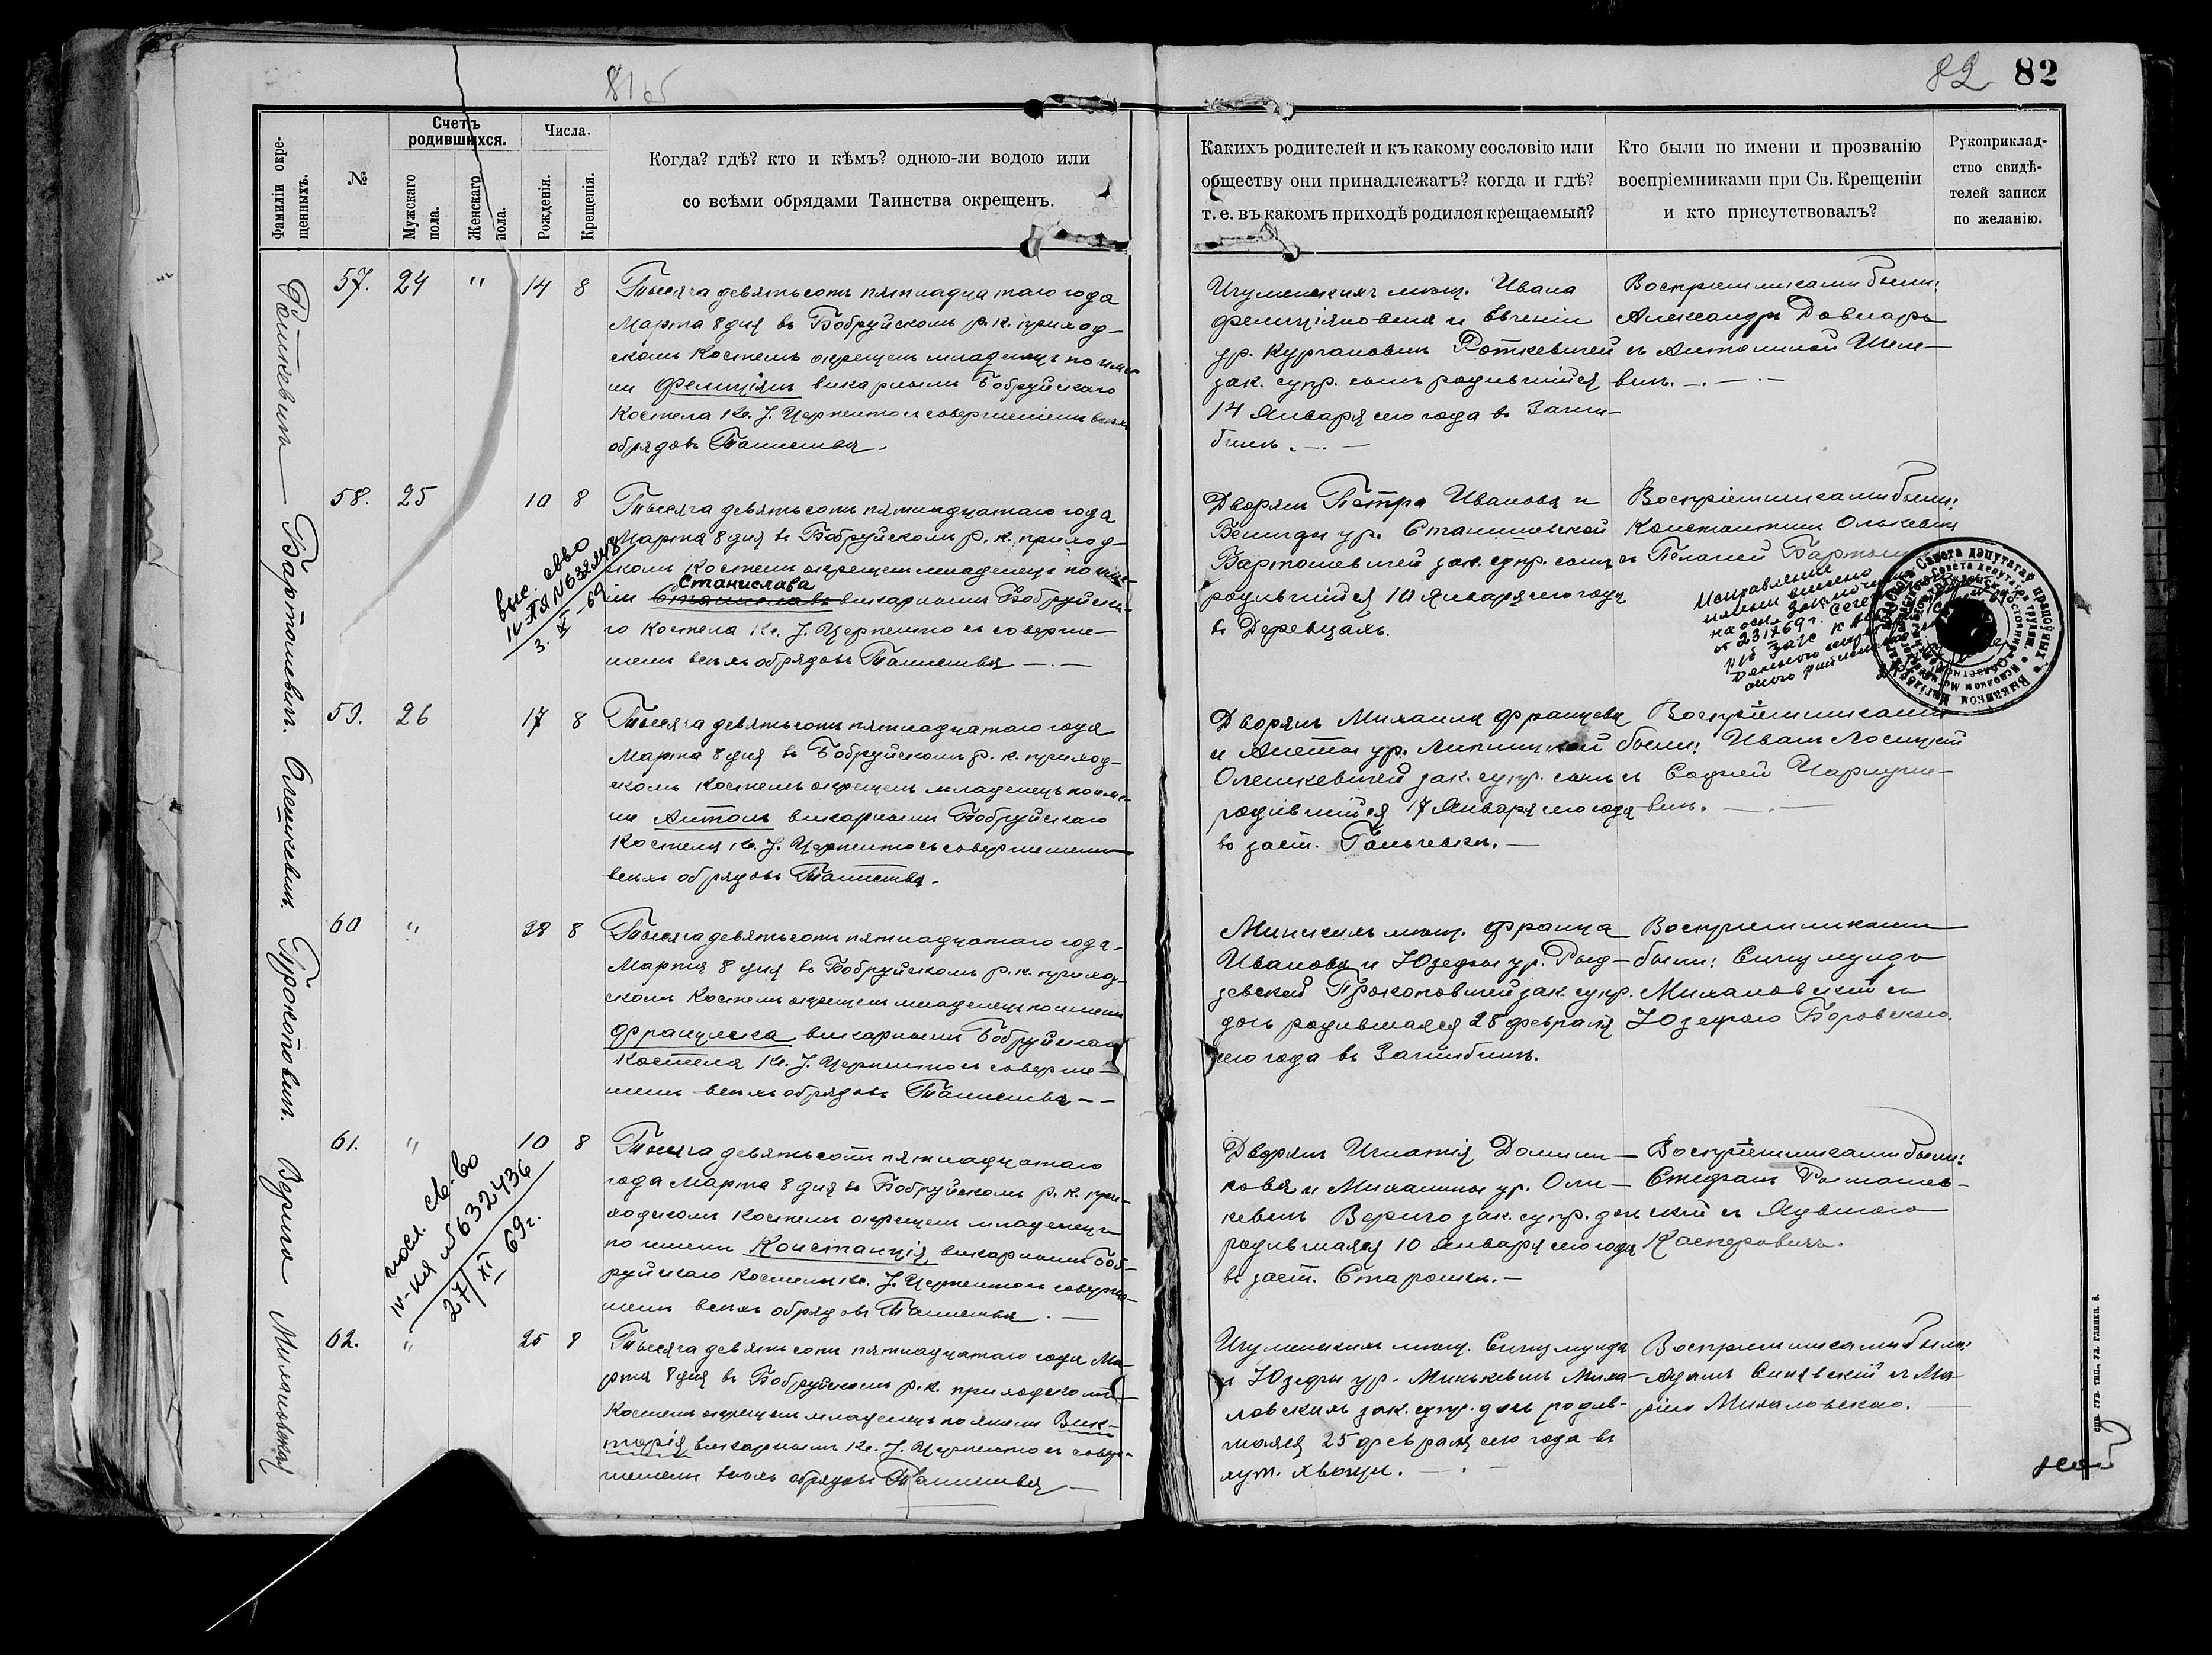 81 об
82 82
Фамиліи окре-
щенныхъ.
№
Счетъ
родившихся.
Мужскаго
пола.
Женскаго
пола.
Числа.
Рожденія.
Крещенія.
Когда? гдѣ? кто и кѣмъ? одною-ли водою или
со всѣми обрядами Таинства окрещенъ.
Какихъ родителей и къ какому сословію или
обществу они принадлежатъ? когда и гдѣ?
т. е. въ какомъ приходѣ родился крещаемый?
Кто были по имени и прозванію
воспріемниками при Св. Крещеніи
и кто присутствовалъ?
Рукоприклад-
ство свидѣ-
телей записи
по желанію.
Роткевичъ
57. 24 " 14 8
Тысяча девятьсотъ пятнадцатаго года
Марта 8 дня въ Бобруйскомъ р. к. приход-
скомъ костелѣ окрещенъ младенецъ по име-
ни Фелиціянъ викарнымъ Бобруйскаго
Костела Кс. J. Церпенто съ совершеніемъ всѣхъ
обрядовъ Таинства.
Игуменскихъ мѣщ. Ивана
Фелиціяновича и Евгеніи
ур. Кургановичъ Роткевичей
зак. супр. сынъ родившійся
14 Января сего года въ
Воспріемниками были:
Александръ Довнаръ
съ Антониной
Бартошевичъ.
58. 25 10 8
Тысяча девятьсотъ пятнадцатаго года
Марта 8 дня въ Бобруйскомъ р. к. приход-
скомъ костелѣ окрещенъ младенецъ по име-
Станислава
ни викарнымъ Бобруйска-
го костела Кс. J. Церпенто съ соверше-
ніемъ всѣхъ обрядовъ Таинства
3. XI-69
Дворянъ Петра Иванова и
ур. Станишевской
Бартошевичей зак. супр. сынъ
родившійся 10 Января сего года
въ Деревцахъ.
Воспріемниками были:
Константинъ Олькевичъ
съ Пелагіей
Исправление
имени внесено
на осн. заключения
Олешкевичъ.
59. 26 17 8
Тысяча девятьсотъ пятнадцатаго года
Марта 8 дня въ Бобруйскомъ р. к. приход-
скомъ костелѣ окрещенъ младенецъ по име-
ни Антонъ викарнымъ Бобруйскаго
Костела Кс. J. Церпенто съ совершеніемъ
всѣхъ обрядовъ Таинства.
Дворянъ Михаила Францева
и Анеты ур. Липницкой
Олешкевичей зак. супр. сынъ
родившійся 17 Января сего года
во заст.
Воспріемниками
были: Иванъ Лосицкій
съ Софіей
Прокоповичъ.
60 " 28 8
Тысяча девятьсотъ пятнадцатаго года
Марта 8 дня въ Бобруйскомъ р. к. приход-
скомъ костелѣ окрещенъ младенецъ по имени
Франциска викарнымъ Бобруйскаго
Костела Кс. J. Церпенто съ соверше-
ніемъ всѣхъ обрядовъ Таинства
Минскихъ мѣщ. Франца
Иванова и Юзефы ур.
Прокоповичей зак. супр.
дочь родившаяся 28 февраля
сего года въ
Воспріемниками
были: Сигизмундъ
Михаловскій съ
Юзефою Боровскою.
Верыго
61. " 10 8
Тысяча девятьсотъ пятнадцатаго
года Марта 8 дня въ Бобруйскомъ р. к. при-
ходскомъ костелѣ окрещенъ младенецъ
по имени Констанція викарнымъ Боб-
руйскаго костела Кс. J. Церпенто съ соверше-
ніемъ всѣхъ обрядовъ Таинства.
св-во
№ 632436
27/XI 69г.
Дворянъ Игнатія Домини-
кова и Михалины ур. Оли-
кевичъ Верыго зак. супр. дочь
родившаяся 10 Января сего года
въ заст.
Воспріемниками были:
Стефанъ Ромашев-
скій съ Ядвигою
Касперовичъ.
Михаловская
62. " 25 8
Тысяча девятьсотъ пятнадцатаго года Ма-
рта 8 дня въ Бобруйскомъ р. к. приходскомъ
костелѣ окрещенъ младенецъ по имени Вик-
торія викарнымъ Кс. J. Церпенто съ совер-
шеніемъ всѣхъ обрядовъ Таинства
Игуменскихъ мѣщ. Сигизмунда
и Юзефы ур. Минькевичъ Миха-
ловскихъ зак. супр. дочь родив-
шаяся 25 февраля сего года въ
Воспріемниками были:
Адамъ Синявскій съ Ма-
ріей Михаловскою.